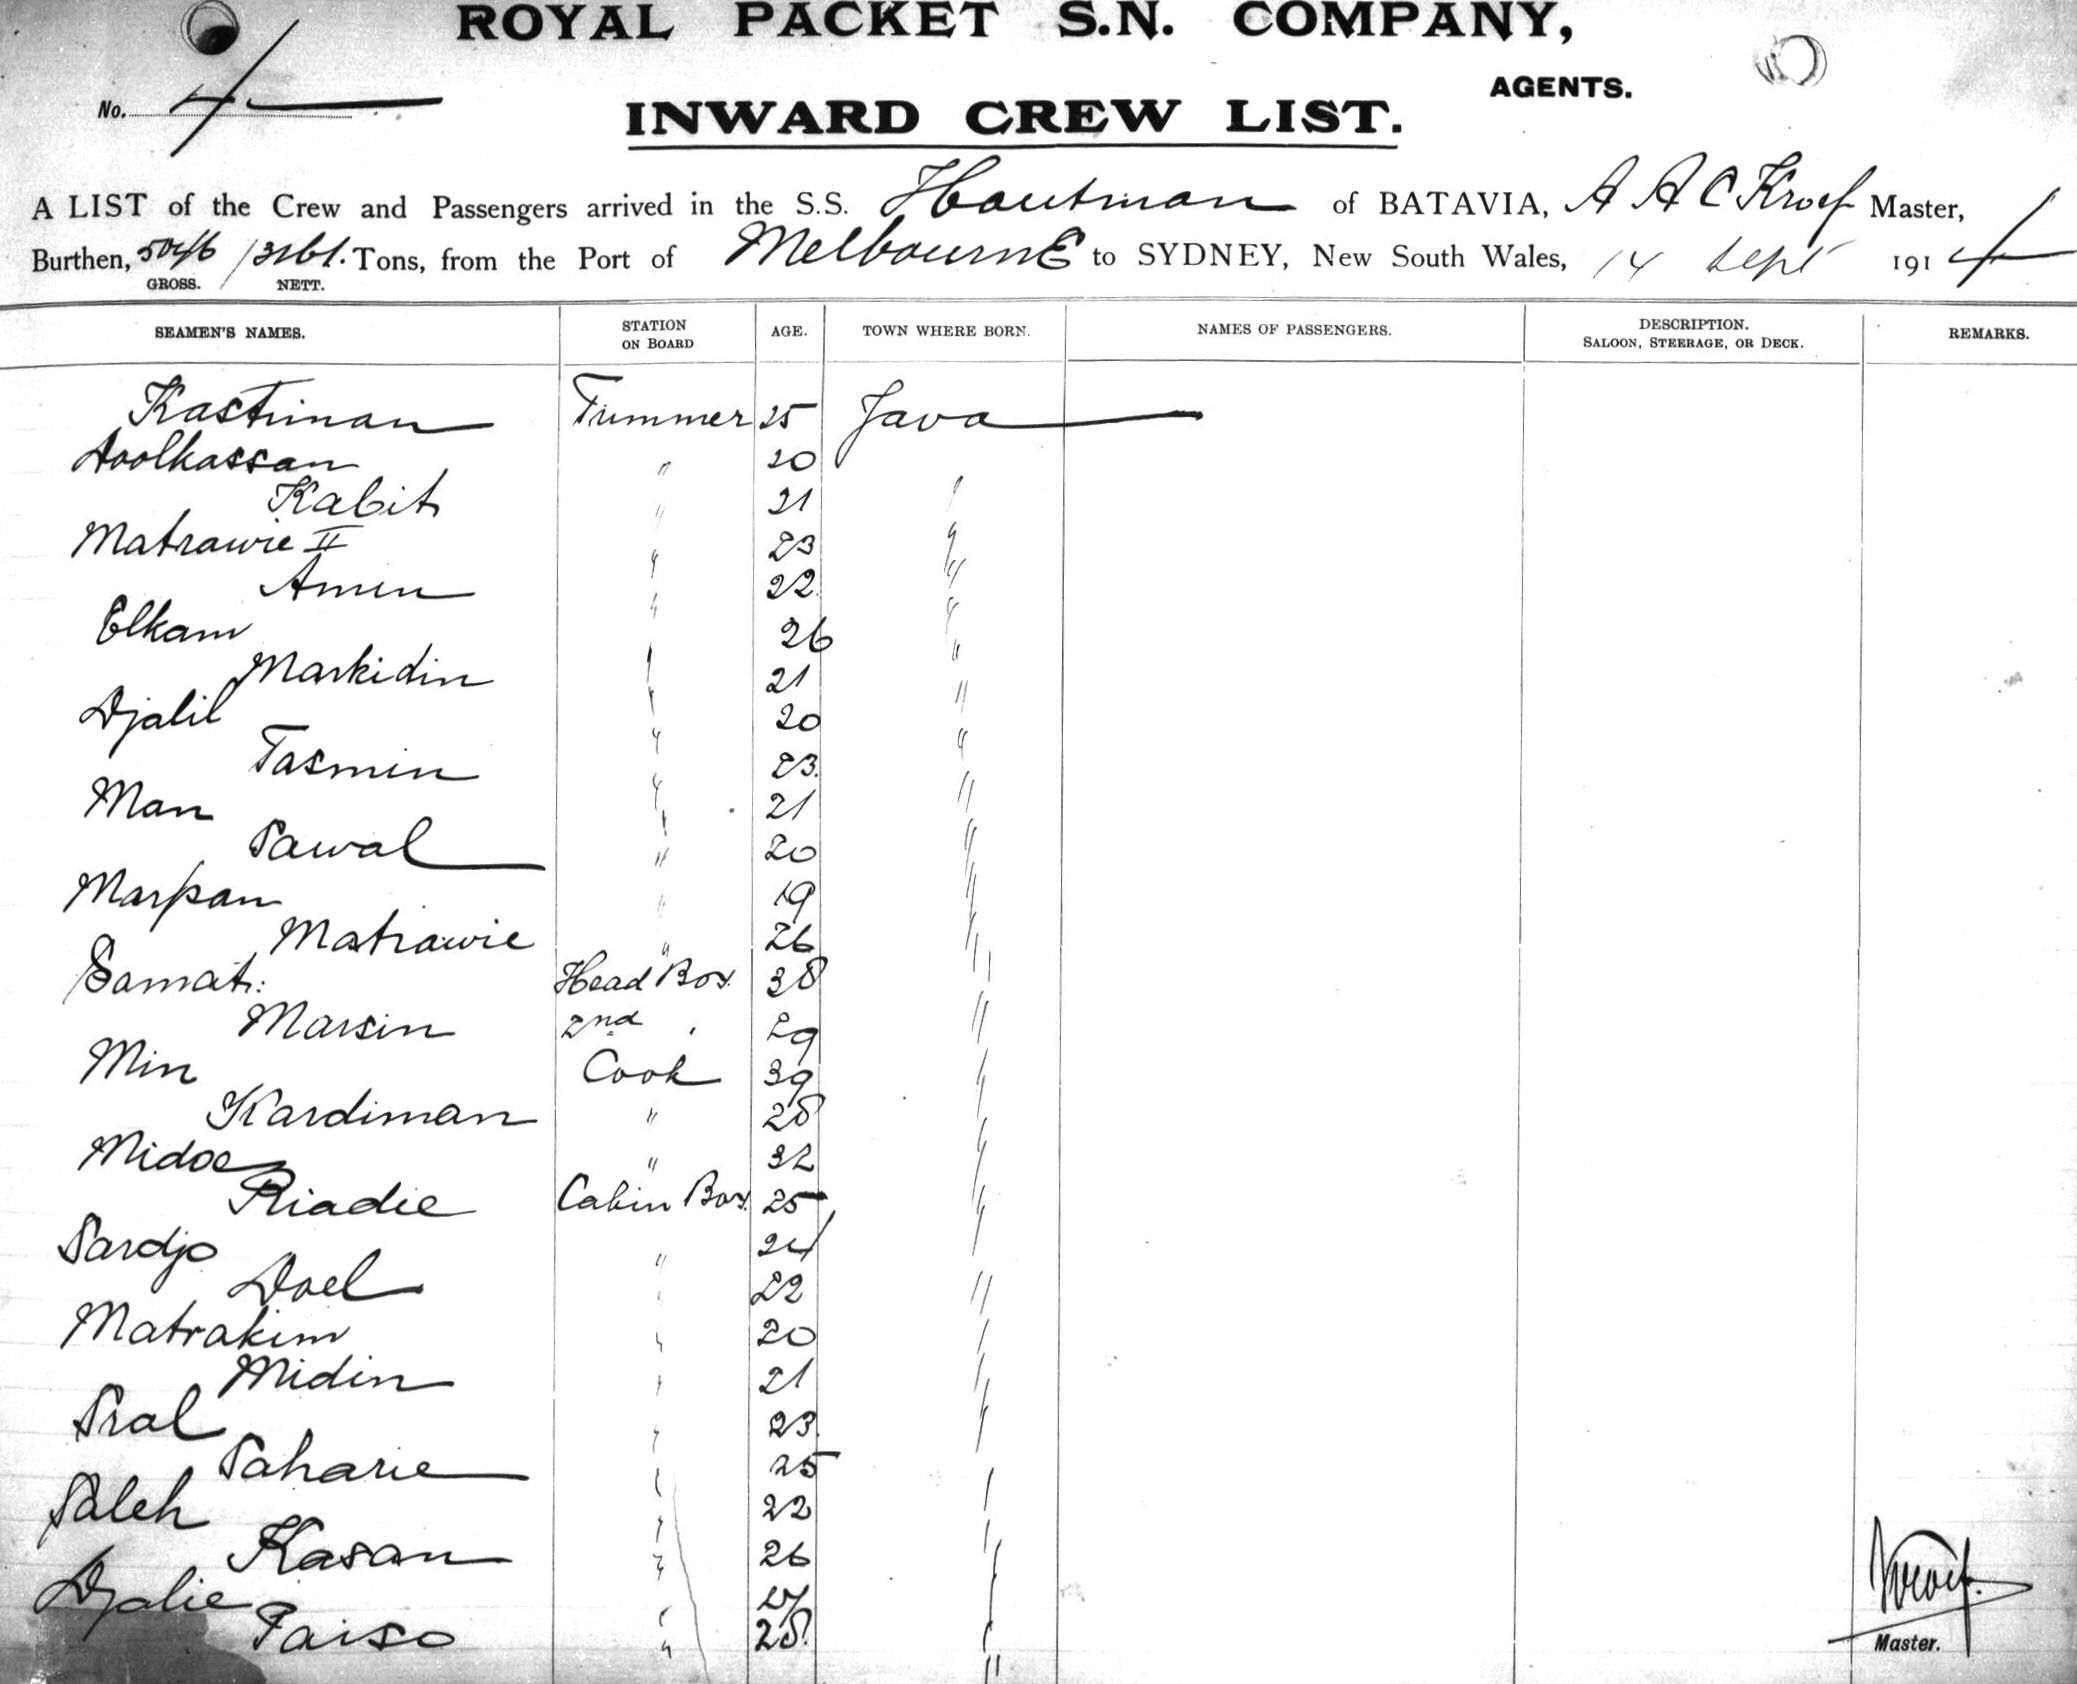 ROYAL PACKET S.N. COMPANY,
AGENTS.
No. 4
INWARD CREW LIST.
A LIST of the Crew and Passengers arrived in the S.S. Houtman of BATAVIA, A A C Kroef Master,
Burthen, / Tons, from the Port of MelbournE to SYDNEY, New South Wales, 14 Sept 1914
GROSS. NETT.
SEAMEN'S NAMES. STATION ON BOARD AGE. TOWN WHERE BORN. NAMES OF PASSENGERS. DESCRIPTION. SALOON, STEERAGE, OR DECK. REMARKS.
Kastiman Trimmer 25 Java
Aoolkassan " 20
Kabit " 21 "
Matrawie II " 23 "
Amin " 22 "
Elkam 26 "
Markidin " 21 "
Djalil " 20 "
Tasmin " 23 "
Man " 21 "
Sawal " 20 "
Marpan " 19 "
Matrawie " 26 "
Samat: Head Boy 38 "
Marsin 2nd " 29 "
Min Cook 39 "
Kardiman " 28 "
Midoe " 32 "
Riadie Cabin Boy 25 "
Sardjo " 24 "
Doel " 22 "
Matrakim " 20 "
Midin " 21 "
Sral " 23 "
Saharie " 25 "
Saleh " 22 "
Kasan " 26 "
Djalie " 27 "
Paiso " 28 "
Kroef.
Master.